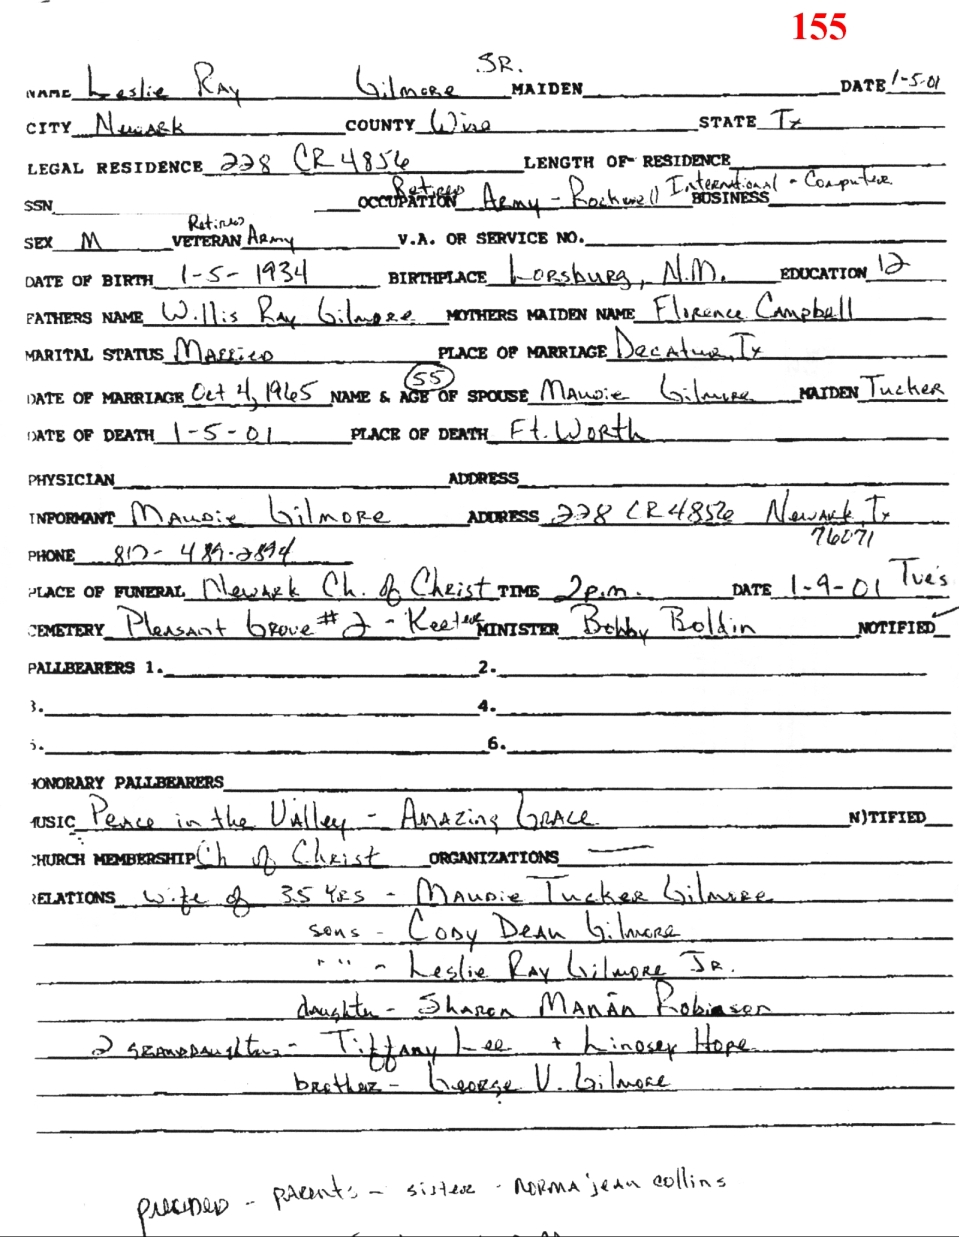 155
SR.
NAME Leslie Ray Gilmore MAIDEN DATE 1-5-01
CITY Newark COUNTY Wise STATE Tx
LEGAL RESIDENCE 228 CR 4856 LENGTH OF RESIDENCE
SSN OCCUPATION Retired Army - Rockwell International - Computer BUSINESS
SEX M VETERAN Retired Army V.A. OR SERVICE NO.
DATE OF BIRTH 1-5-1934 BIRTHPLACE Lorsburg, N.M. EDUCATION 12
FATHERS NAME Willis Ray Gilmore MOTHERS MAIDEN NAME Florence Campbell
MARITAL STATUS Married PLACE OF MARRIAGE Decatur, Tx
DATE OF MARRIAGE Oct 4, 1965 NAME & AGE OF SPOUSE 55 Maudie Gilmore MAIDEN Tucker
DATE OF DEATH 1-5-01 PLACE OF DEATH Ft. Worth
PHYSICIAN ADDRESS
INFORMANT Maudie Gilmore ADDRESS 228 CR 4856 Newark, Tx
76071
PHONE 817-489-2894
PLACE OF FUNERAL Newark Ch. of Christ TIME 2p.m. DATE 1-9-01 Tues
CEMETERY Pleasant Grove #2 - Keeter MINISTER Bobby Boldin NOTIFIED
PALLBEARERS 1. 2.
3. 4.
5. 6.
HONORARY PALLBEARERS
MUSIC Peace in the Valley - Amazing Grace N)TIFIED
CHURCH MEMBERSHIP Ch of Christ ORGANIZATIONS
RELATIONS wife of 35 yrs - Maudie Tucker Gilmore
sons - Cody Dean Gilmore
" " - Leslie Ray Gilmore Jr.
daughter - Sharon Robinson
2 granddaughters - Tiffany Lee + Lindsey Hope
brother - George V. Gilmore
preceded - parents - sister - Norma jean collins